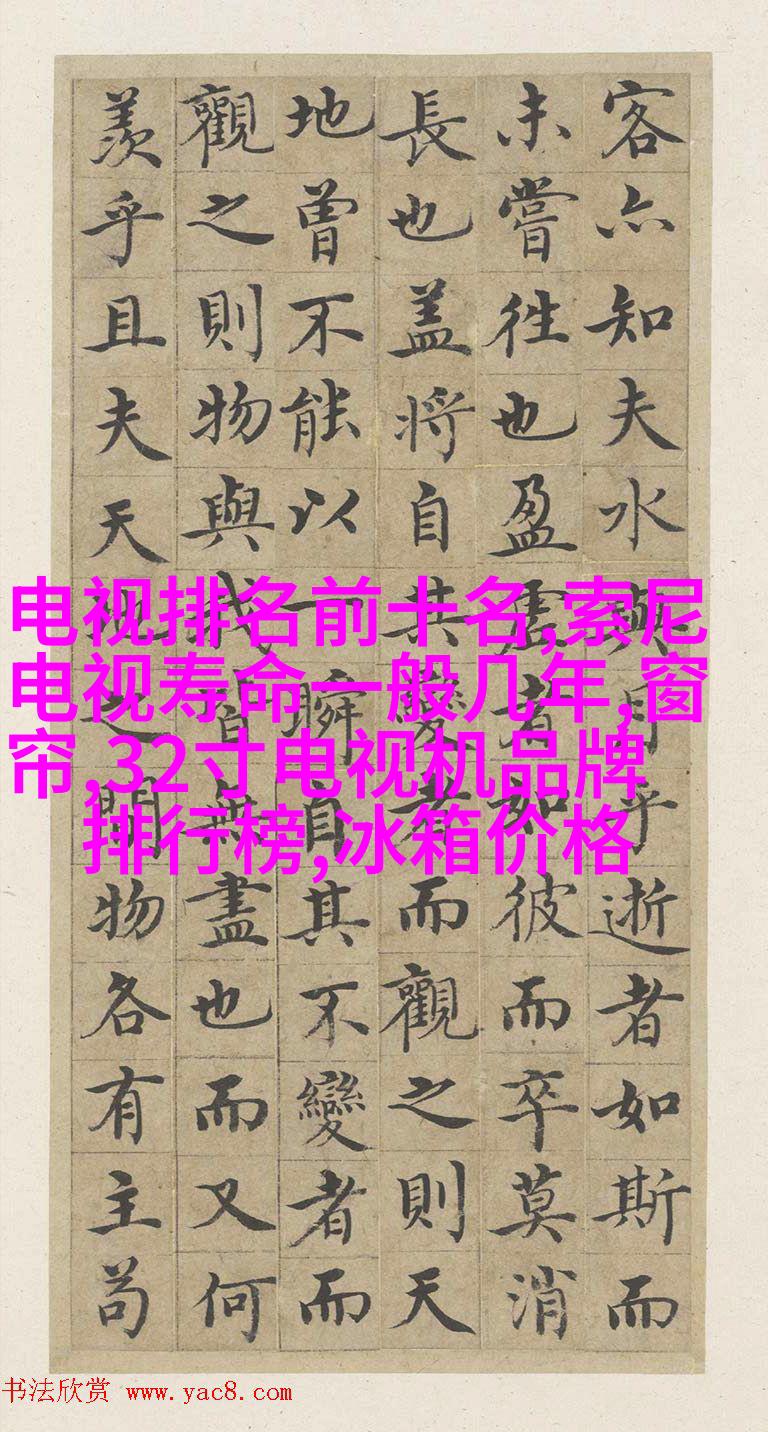 客亦知夫水與月乎逝者如斯而
未嘗往也盈虛者如彼而卒莫消
長也盖將自其變者而觀之則天
地曾不能以一瞬自其不變者而
觀之則物與我皆無盡也而又何
羨乎且夫天地之間物各有主苟
电视排名前十名,索尼
电视寿命一般几年,窗
帘,32寸电视机品牌
排行榜,冰箱价格
书法欣赏 www.yac8.com